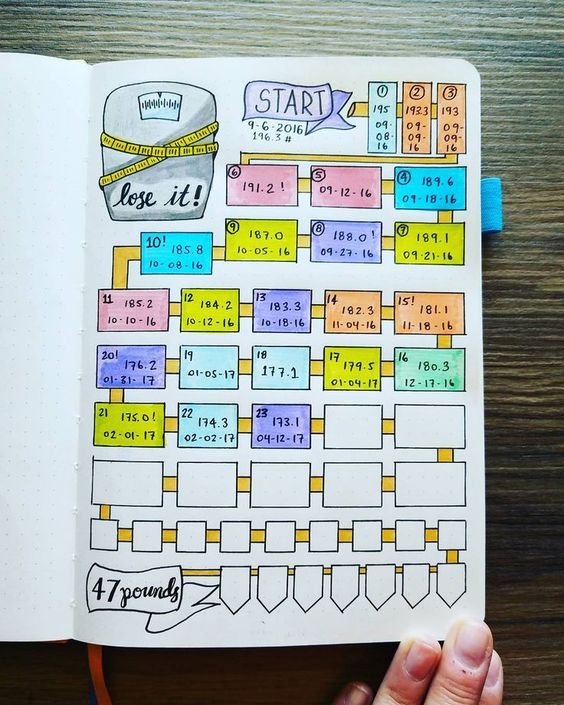 lose it!
START
9-6-2016
196.3 #
1
195
09-
08-
16
2
193.3
09-
09-
16
3
193
09-
09-
16
4
189.6
09-18-16
5
09-12-16
6
191.2 !
7
189.1
09-21-16
8
188.0!
09-27-16
9
187.0
10-05-16
10!
185.8
10-08-16
11
185.2
10-10-16
12
184.2
10-12-16
13
183.3
10-18-16
14
182.3
11-04-16
15!
181.1
11-18-16
16
180.3
12-17-16
17
179.5
01-04-17
18
177.1
19
01-05-17
20!
176.2
01-31-17
21
175.0!
02-01-17
22
174.3
02-02-17
23
173.1
04-12-17
47 pounds